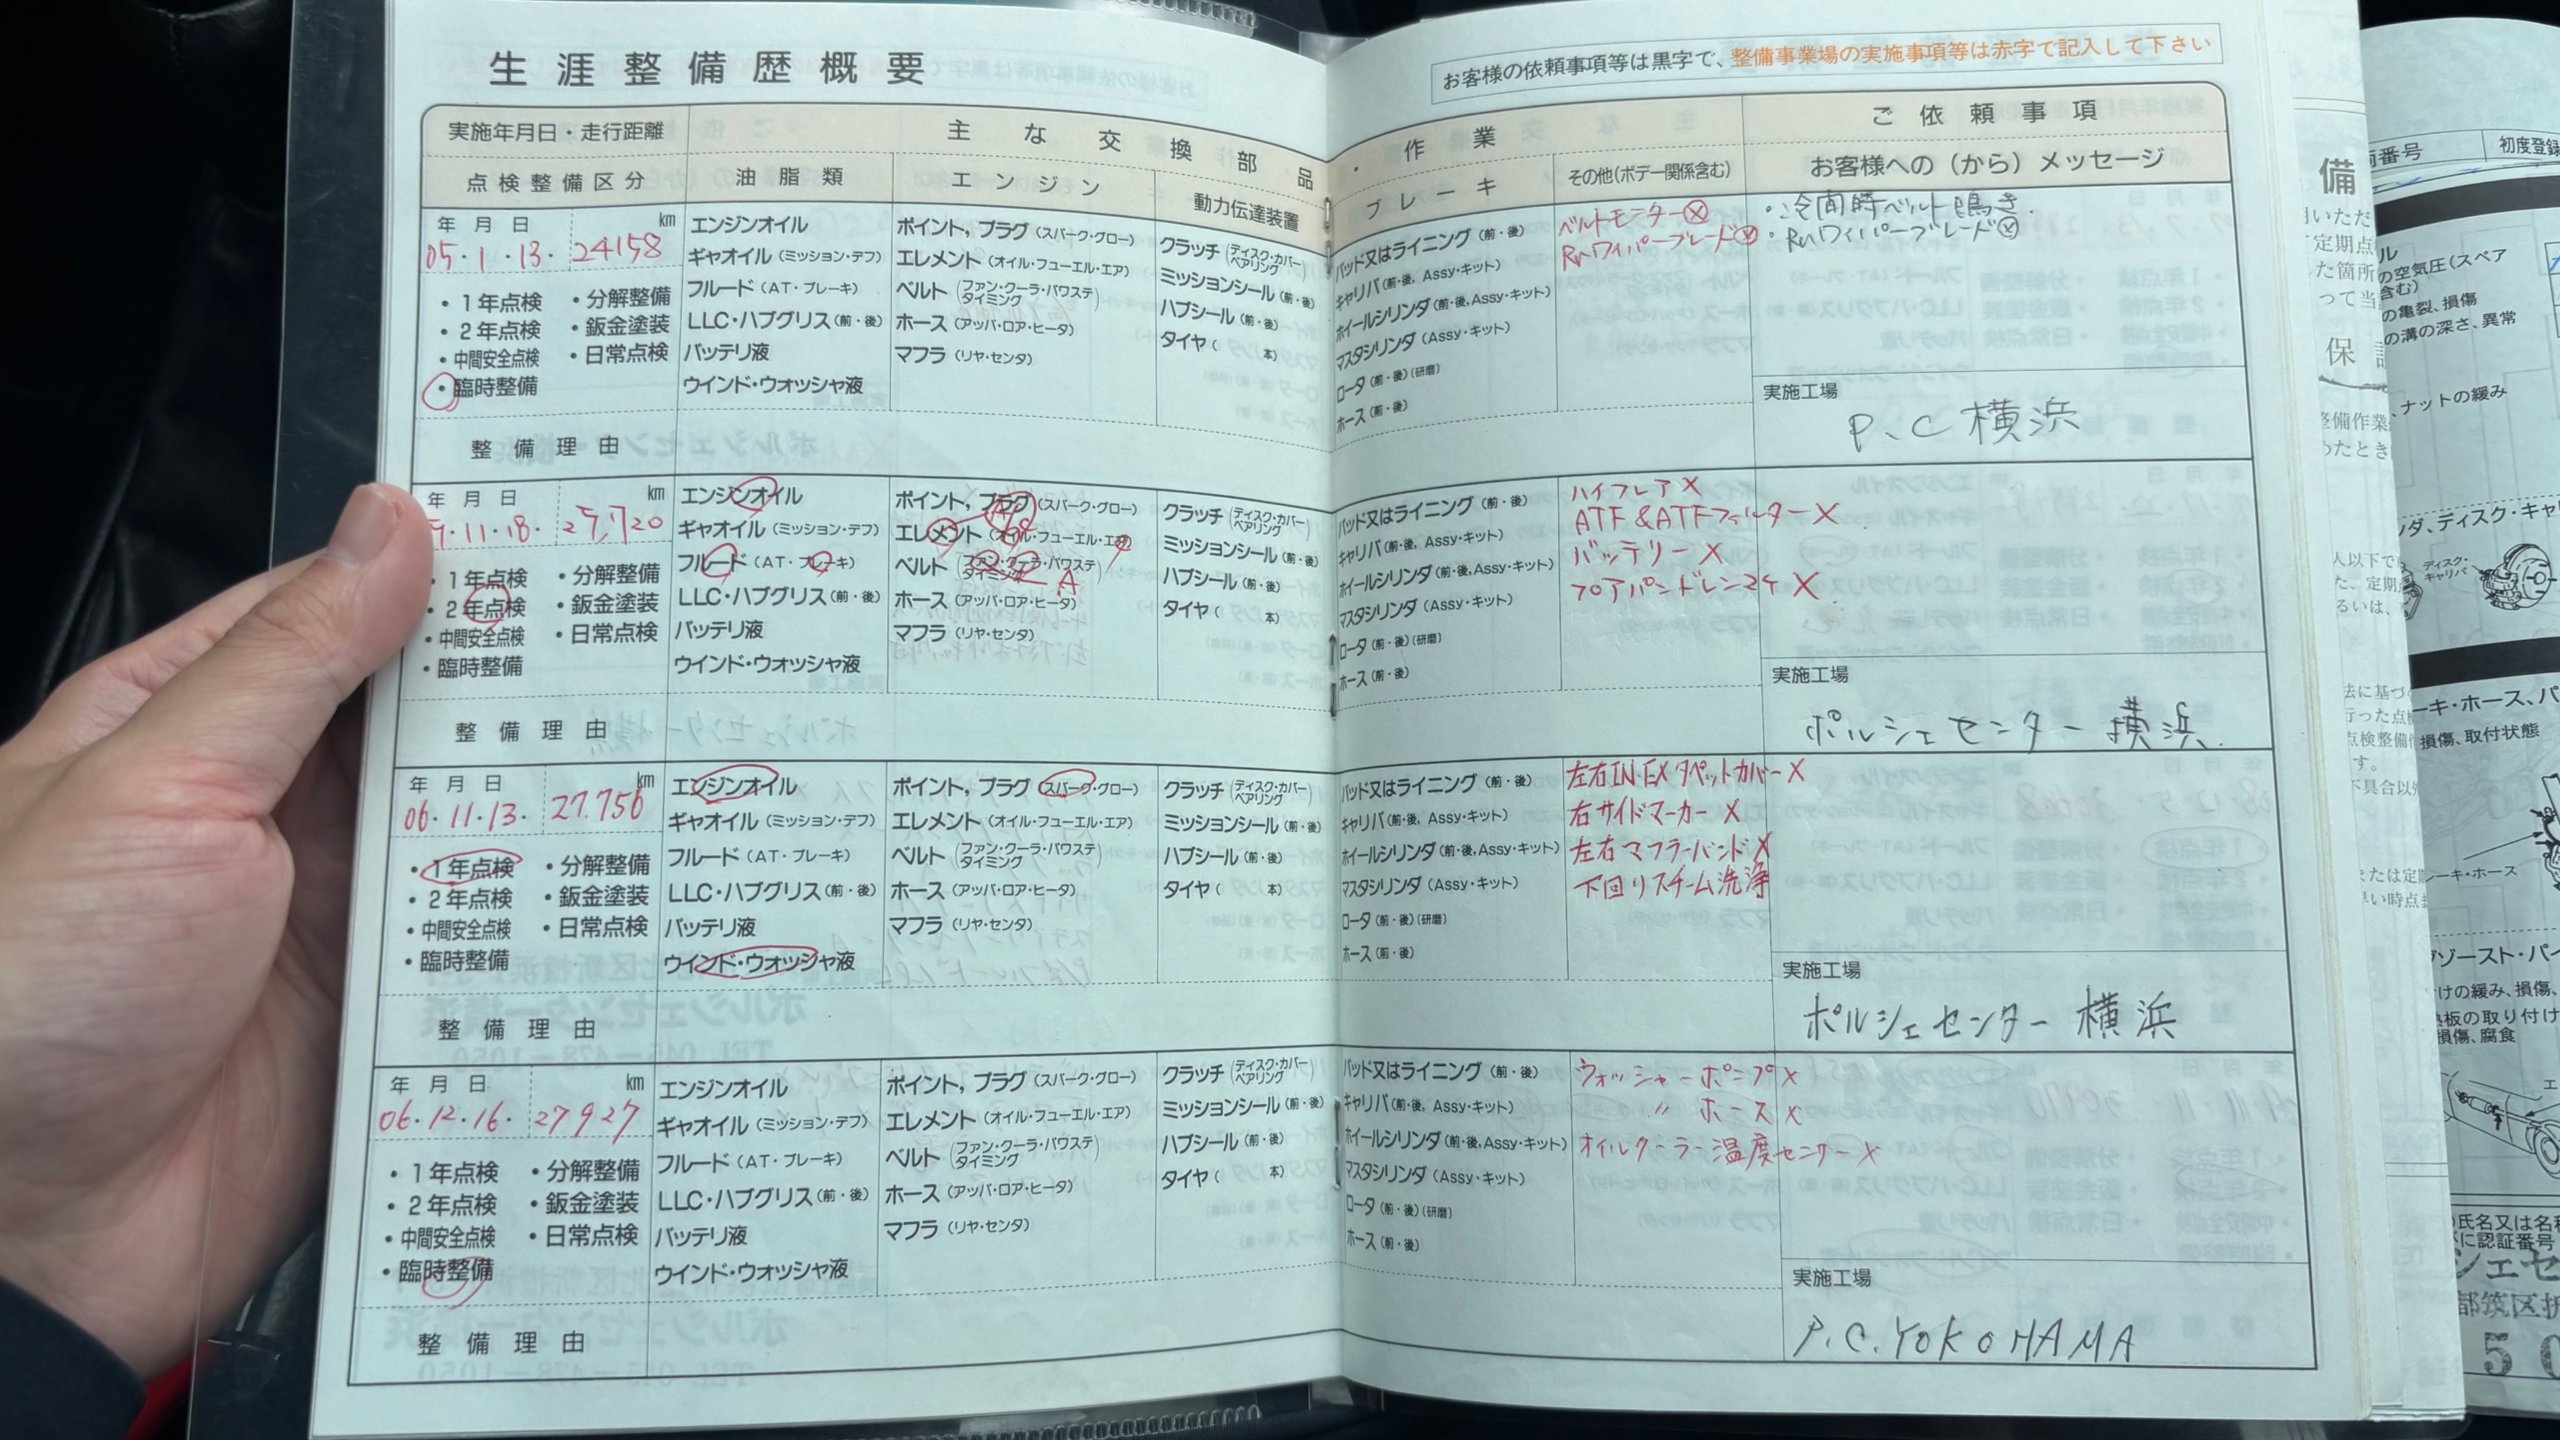 生涯整備歴概要
お客様の依頼事項等は黒字で、整備事業場の実施事項等は赤字で記入して下さい
実施年月日・走行距離
主な交換部品・作業
ご依頼事項
点検整備区分
油脂類
エンジン
動力伝達装置
ブレーキ
その他(ボデー関係含む)
お客様への(から)メッセージ
年 月 日 km
05・1・13. 24158
・1年点検 ・分解整備
・2年点検 ・鈑金塗装
・中間安全点検 ・日常点検
・臨時整備
整備理由
エンジンオイル
ギヤオイル(ミッション・デフ)
フルード(AT・ブレーキ)
LLC・ハブグリス(前・後)
バッテリ液
ウインド・ウォッシャ液
ポイント, プラグ(スパーク・グロー)
エレメント(オイル・フューエル・エア)
ベルト(ファン・クーラ・パワステ タイミング)
ホース(アッパ・ロア・ヒータ)
マフラ(リヤ・センタ)
クラッチ(ディスク・カバー ベアリング)
ミッションシール(前・後)
ハブシール(前・後)
タイヤ( 本)
パッド又はライニング(前・後)
キャリパ(前・後, Assy・キット)
ホイールシリンダ(前・後, Assy・キット)
マスタシリンダ(Assy・キット)
ロータ(前・後)(研磨)
ホース(前・後)
ベルトモニターⓧ
Rrワイパーブレードⓧ
・冷間時ベルト鳴き.
・Rrワイパーブレードⓧ
実施工場
P.C横浜
年 月 日 km
11・18. 25,720
・1年点検 ・分解整備
・2年点検 ・鈑金塗装
・中間安全点検 ・日常点検
・臨時整備
整備理由
エンジンオイル
ギヤオイル(ミッション・デフ)
フルード(AT・ブレーキ)
LLC・ハブグリス(前・後)
バッテリ液
ウインド・ウォッシャ液
ポイント, プラグ(スパーク・グロー)
エレメント(オイル・フューエル・エア)
ベルト(ファン・クーラ・パワステ タイミング) A
ホース(アッパ・ロア・ヒータ)
マフラ(リヤ・センタ)
クラッチ(ディスク・カバー ベアリング)
ミッションシール(前・後)
ハブシール(前・後)
タイヤ( 本)
パッド又はライニング(前・後)
キャリパ(前・後, Assy・キット)
ホイールシリンダ(前・後, Assy・キット)
マスタシリンダ(Assy・キット)
ロータ(前・後)(研磨)
ホース(前・後)
ハイフレア X
ATF & ATFフィルター X
バッテリー X
実施工場
ポルシェセンター横浜.
年 月 日 km
06.11.13. 27.756
・1年点検 ・分解整備
・2年点検 ・鈑金塗装
・中間安全点検 ・日常点検
・臨時整備
整備理由
エンジンオイル
ギヤオイル(ミッション・デフ)
フルード(AT・ブレーキ)
LLC・ハブグリス(前・後)
バッテリ液
ウインド・ウォッシャ液
ポイント, プラグ(スパーク・グロー)
エレメント(オイル・フューエル・エア)
ベルト(ファン・クーラ・パワステ タイミング)
ホース(アッパ・ロア・ヒータ)
マフラ(リヤ・センタ)
クラッチ(ディスク・カバー ベアリング)
ミッションシール(前・後)
ハブシール(前・後)
タイヤ( 本)
パッド又はライニング(前・後)
キャリパ(前・後, Assy・キット)
ホイールシリンダ(前・後, Assy・キット)
マスタシリンダ(Assy・キット)
ロータ(前・後)(研磨)
ホース(前・後)
左右IN・EXタペットカバー X
右サイドマーカー X
左右マフラーバンド X
下回りスチーム洗浄
実施工場
ポルシェセンター横浜
年 月 日 km
06・12・16. 27927
・1年点検 ・分解整備
・2年点検 ・鈑金塗装
・中間安全点検 ・日常点検
・臨時整備
整備理由
エンジンオイル
ギヤオイル(ミッション・デフ)
フルード(AT・ブレーキ)
LLC・ハブグリス(前・後)
バッテリ液
ウインド・ウォッシャ液
ポイント, プラグ(スパーク・グロー)
エレメント(オイル・フューエル・エア)
ベルト(ファン・クーラ・パワステ タイミング)
ホース(アッパ・ロア・ヒータ)
マフラ(リヤ・センタ)
クラッチ(ディスク・カバー ベアリング)
ミッションシール(前・後)
ハブシール(前・後)
タイヤ( 本)
パッド又はライニング(前・後)
キャリパ(前・後, Assy・キット)
ホイールシリンダ(前・後, Assy・キット)
マスタシリンダ(Assy・キット)
ロータ(前・後)(研磨)
ホース(前・後)
ウォッシャーポンプ X
〃 ホース X
オイルクーラー温度センサー X
実施工場
P.C.YOKOHAMA
備
保
番号
初度登録
の空気圧(スペア
含む)
の亀裂、損傷
の溝の深さ、異常
ナットの緩み
ディスク・キャリパ
損傷、取付状態
ーキ・ホース
けの緩み、損傷、
損傷、腐食
氏名又は名称
に認証番号